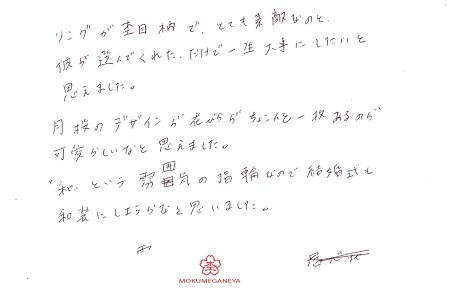 リングが杢目柄で、とても素敵なのと、
彼が選んでくれた、だけで一生大事にしたいと
思えました。
月桜のデザインが花びらがちょこんと一枚あるのが
可愛らしいなと思えました。
"和"という雰囲気の指輪なので結婚式も
和装にしようかなと思いました。
MOKUMEGANEYA